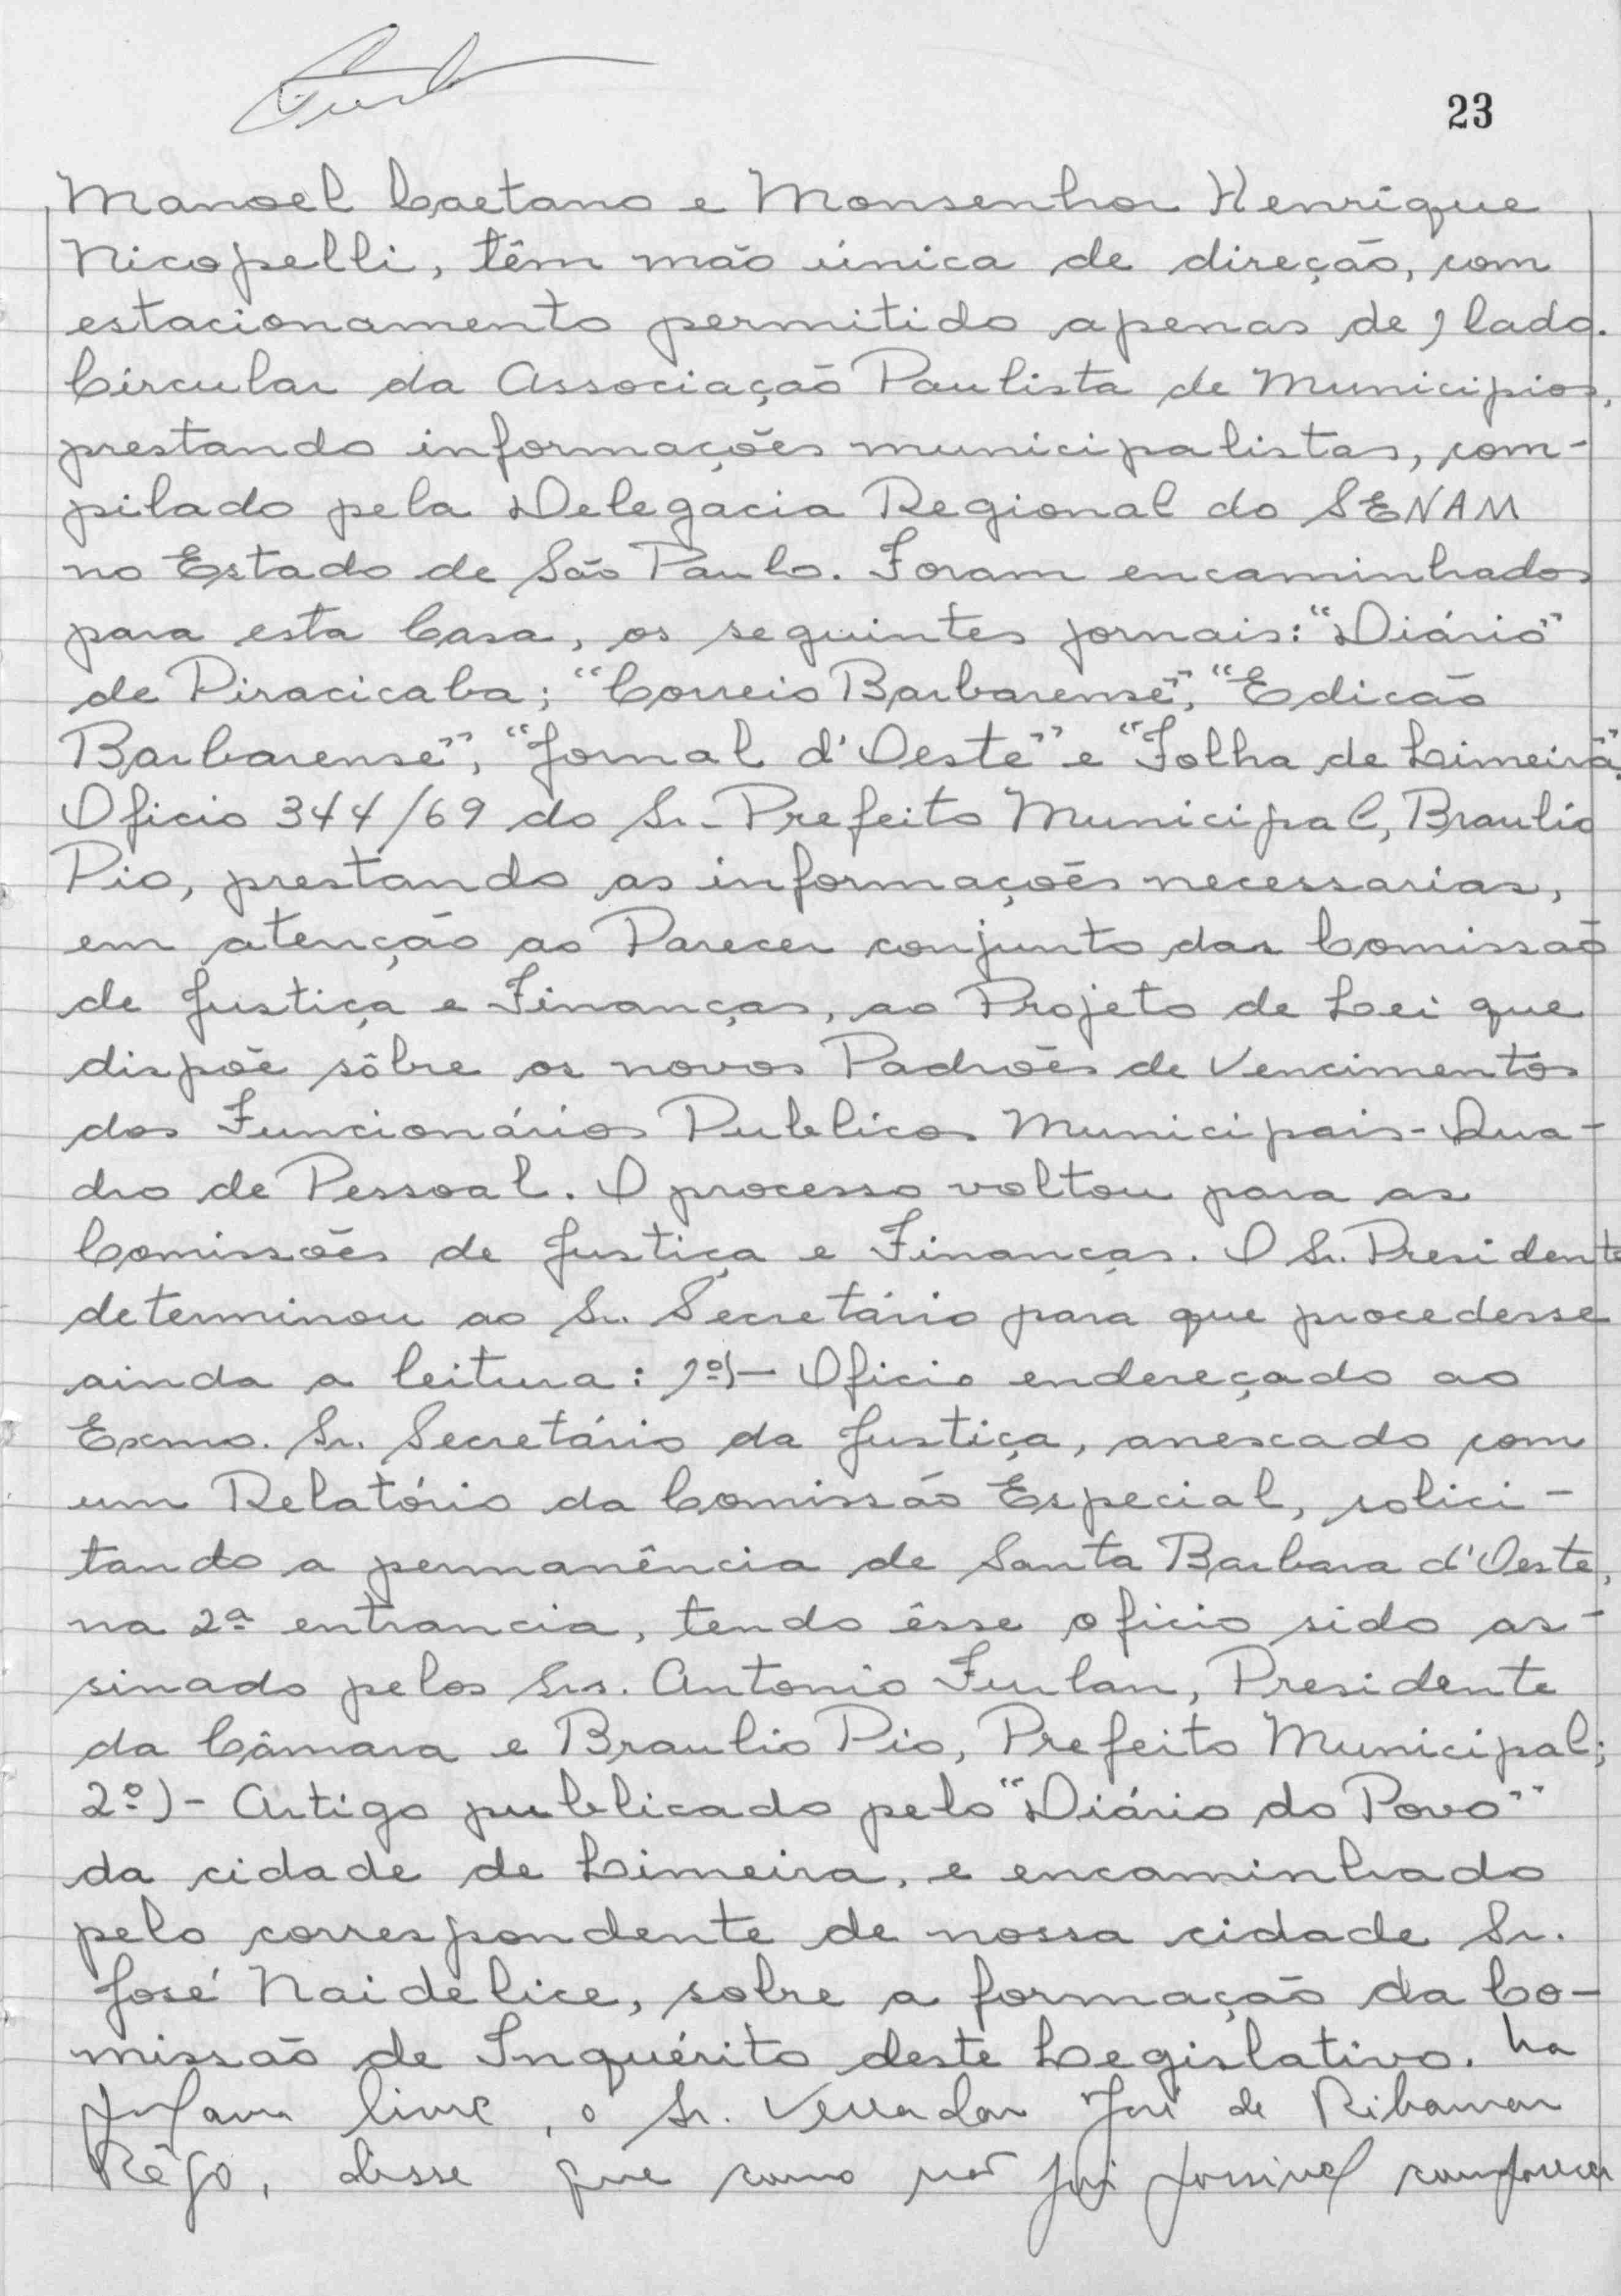 23
Manoel Caetano e Monsenhor Henrique
Nicopelli, têm mão única de direção, com
estacionamento permitido apenas de 1 lado.
Circular da Associação Paulista de Municipios,
prestando informações municipalistas, com-
pilado pela Delegacia Regional do SENAM
no Estado de São Paulo. Foram encaminhados
para esta Casa, os seguintes jornais: "Diário"
de Piracicaba; "Correio Barbarense", "Edicão
Barbarense", "Jornal d'Oeste" e "Folha de Limeira".
Oficio 344/69 do Sr. Prefeito Municipal, Braulio
Pio, prestando as informações necessarias,
em atenção ao Parecer conjunto das Comissão
de Justiça e Finanças, ao Projeto de Lei que
dispõe sôbre os novos Padrões de Vencimentos
dos Funcionários Publicos Municipais - Qua-
dro de Pessoal. O processo voltou para as
Comissões de Justiça e Finanças. O Sr. Presidente
determinou ao Sr. Secretário para que procedesse
ainda a leitura: 1º)- Oficio endereçado ao
Exmo. Sr. Secretário da Justiça, anexado com
um Relatório da Comissão Especial, solici-
tando a permanência de Santa Barbara d'Oeste,
na 2ª entrancia, tendo êsse oficio sido as-
sinado pelos Srs. Antonio Furlan, Presidente
da Câmara e Braulio Pio, Prefeito Municipal;
2º)- Artigo publicado pelo "Diário do Povo"
da cidade de Limeira, e encaminhado
pelo correspondente de nossa cidade Sr.
José Naidelice, sobre a formação da Co-
missão de Inquérito deste Legislativo. Na
palavra livre, o Sr. Vereador José de Ribamar
Rêgo, disse que como não foi possivel comparecer